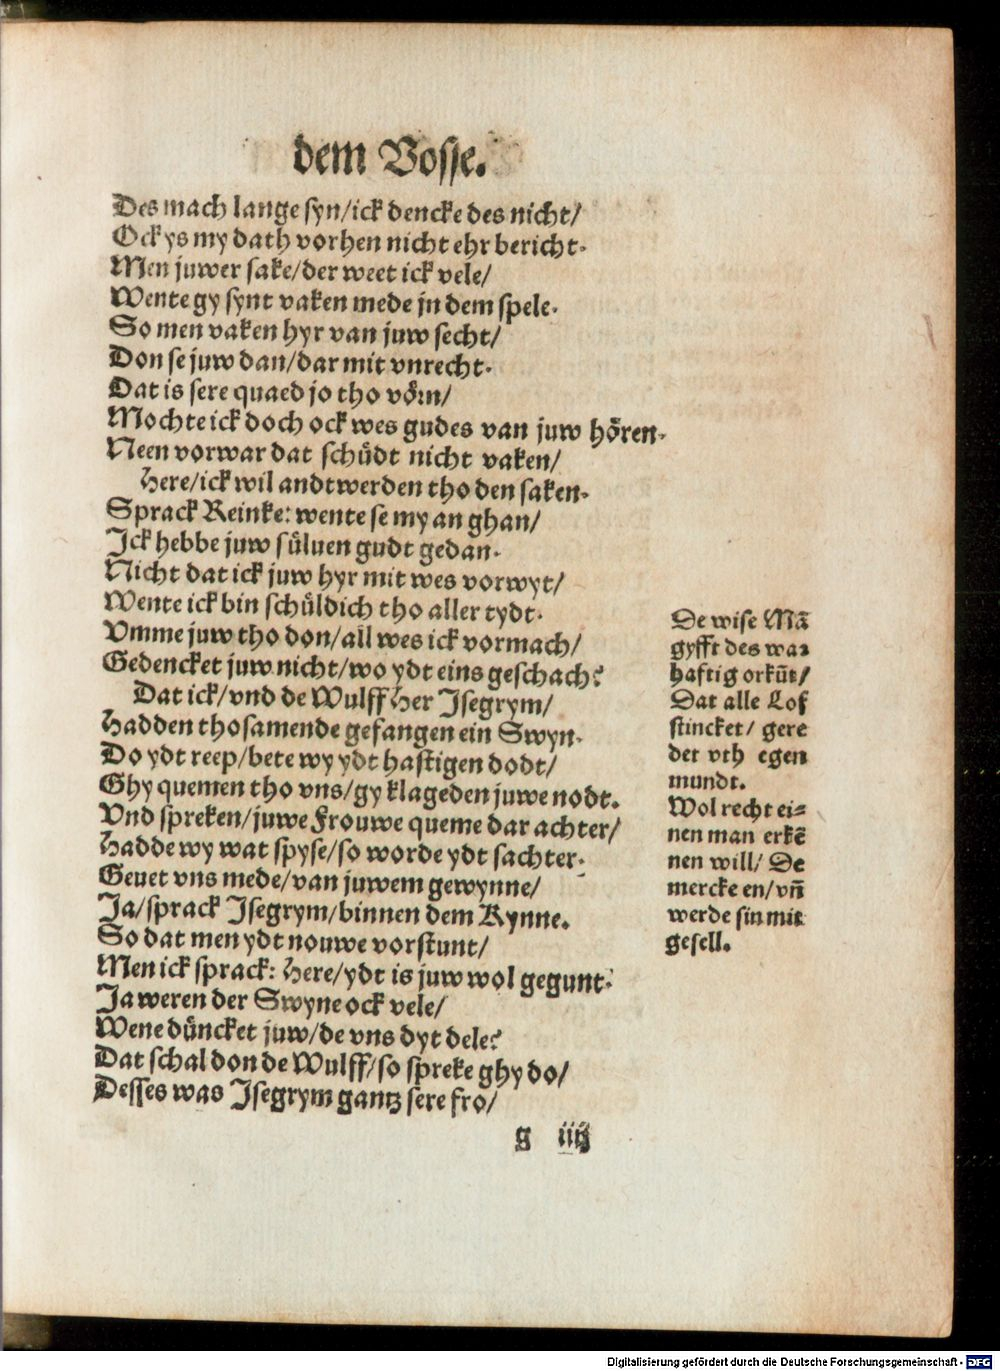 dem Vosse.
Des mach lange syn/ick dencke des nicht/
Ock ys my dath vorhen nicht ehr bericht.
Men juwer sake/der weet ick vele/
Wente gy synt vaken mede jn dem spele.
So men vaken hyr van juw secht/
Don se juw dan/dar mit vnrecht.
Dat is sere quaed jo tho vörn/
Mochte ick doch ock wes gudes van juw hören.
Neen vorwar dat schüdt nicht vaken/
Here/ick wil andtwerden tho den saken.
Sprack Reinke: wente se my an ghan/
Ick hebbe juw süluen gudt gedan.
Nicht dat ick juw hyr mit wes vorwyt/
Wente ick bin schüldich tho aller tydt.
Vmme juw tho don/all wes ick vormach/
Gedencket juw nicht/wo ydt eins geschach?
Dat ick/vnd de Wulff Her Isegrym/
Hadden thosamende gefangen ein Swyn.
Do ydt reep/bete wy ydt hastigen dodt/
Ghy quemen tho vns/gy klageden juwe nodt.
Vnd spreken/juwe Frouwe queme dar achter/
Hadde wy wat spyse/so worde ydt sachter.
Geuet vns mede/van juwem gewynne/
Ja/sprack Isegrym/binnen dem Kynne.
So dat men ydt nouwe vorstunt/
Men ick sprack: Here/ydt is juw wol gegunt.
Ja weren der Swyne ock vele/
Wene düncket juw/de vns dyt dele?
Dat schal don de Wulff/so spreke ghy do/
Desses was Isegrym gantz sere fro/
g iiij
De wise Mā
gyfft des war
haftig orkūt/
Dat alle Lof
stincket/ gere
det vth egen
mundt.
Wol recht ei=
nen man erkē
nen will/ De
mercke en/vn̄
werde sin mit
gesell.
Digitalisierung gefördert durch die Deutsche Forschungsgemeinschaft - DFG